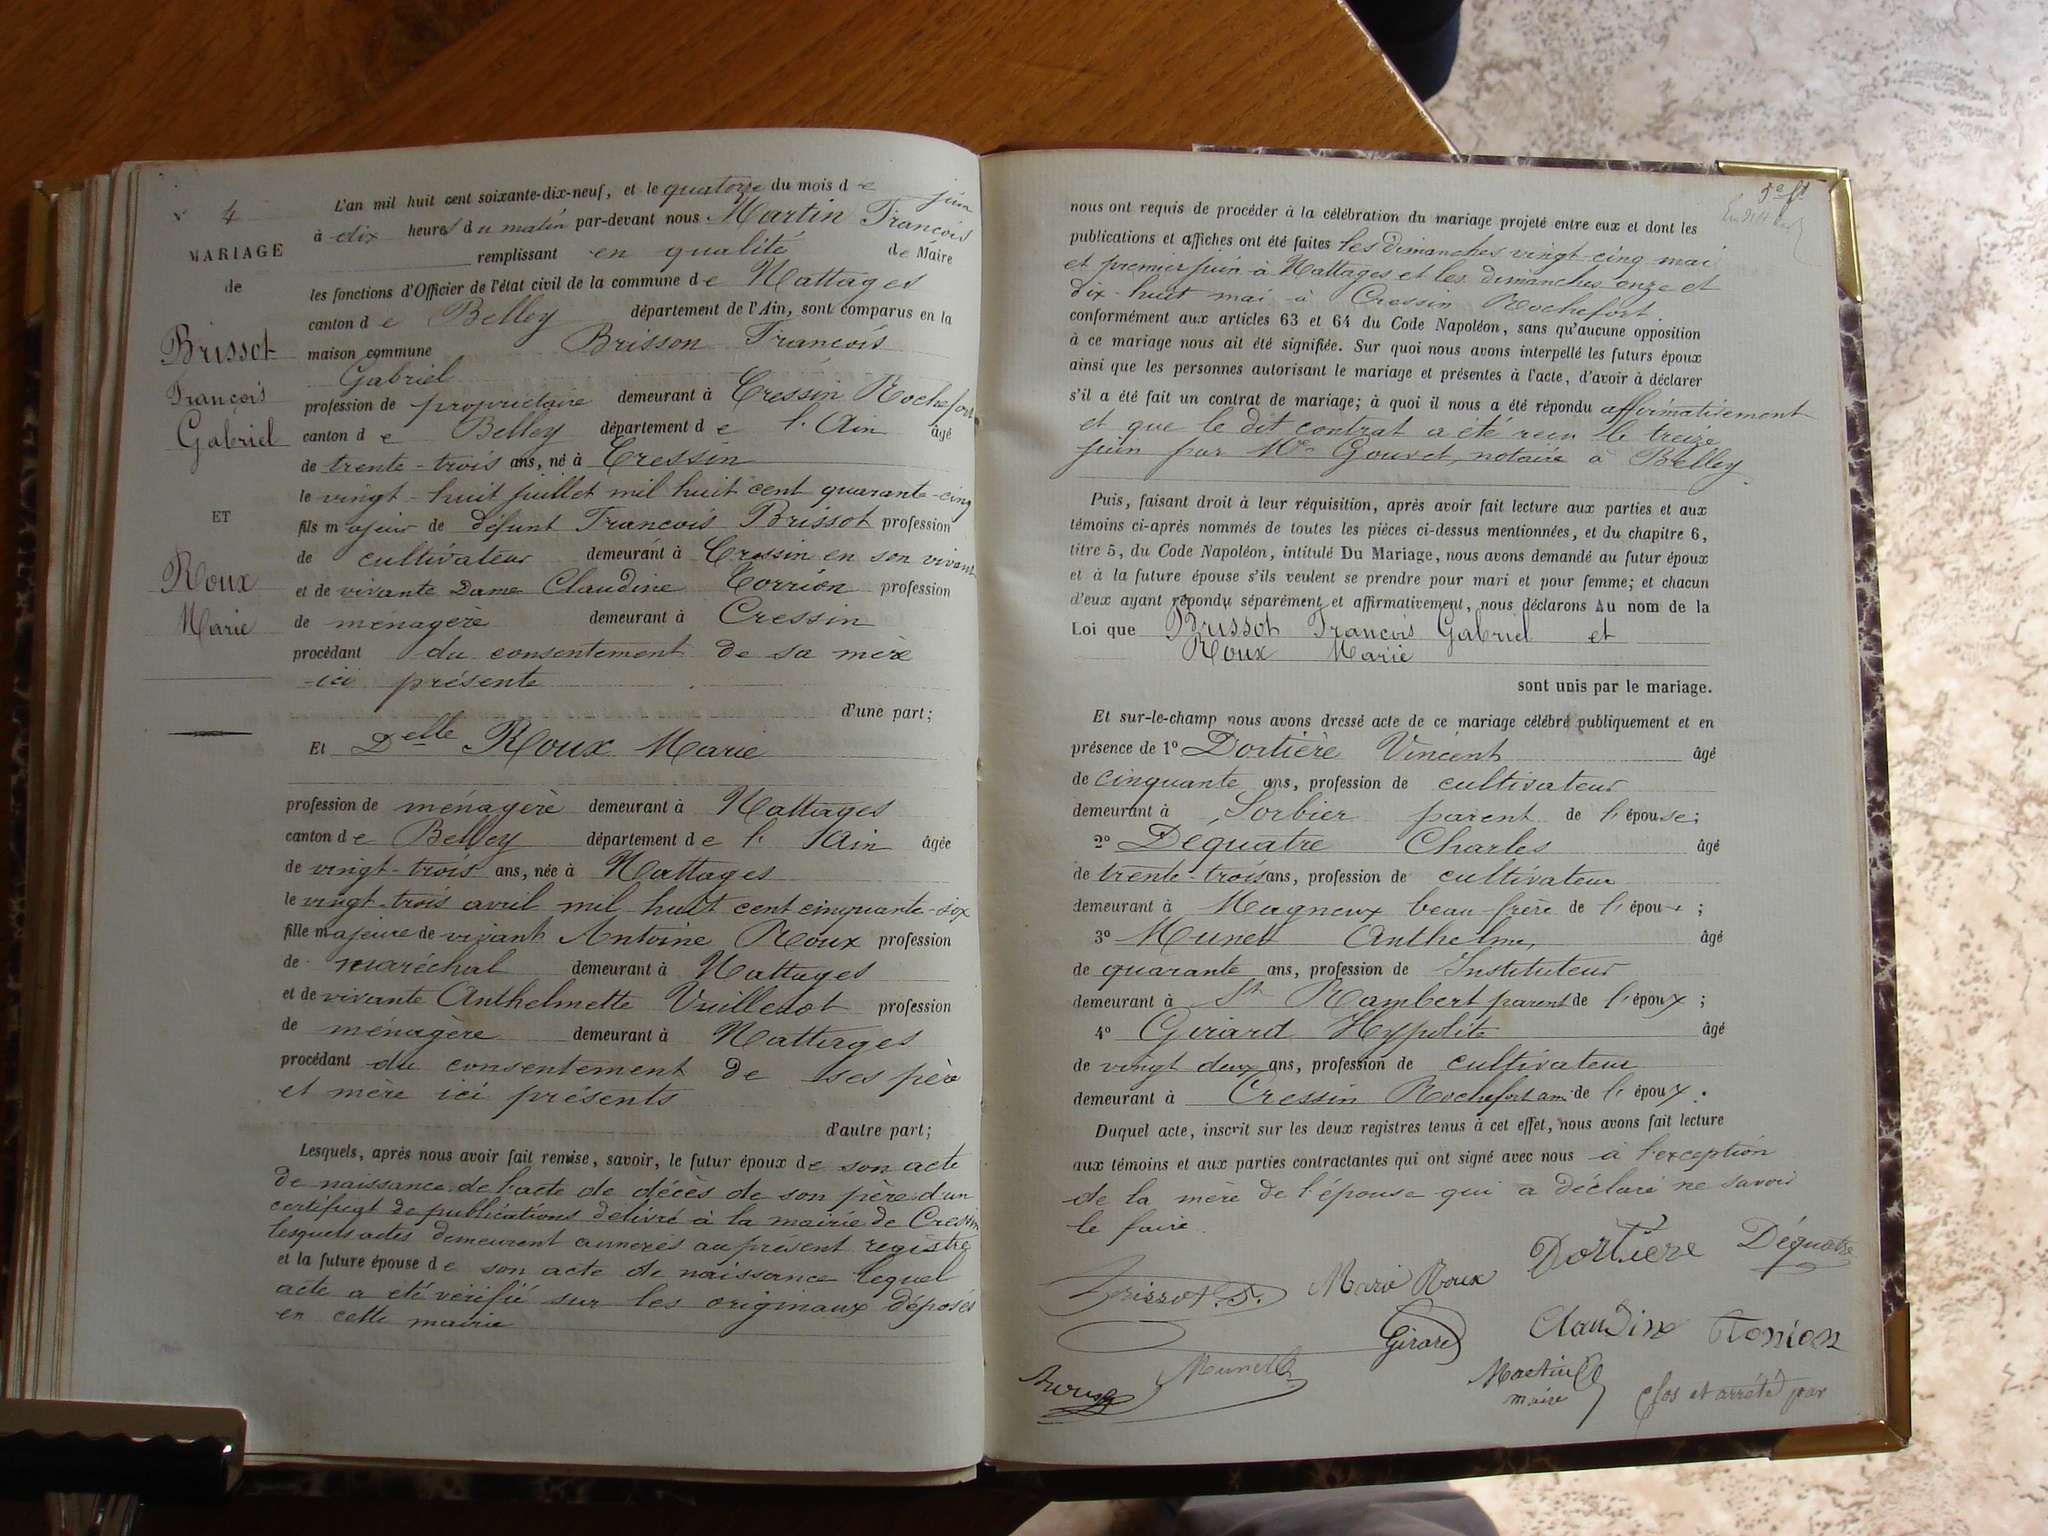 N° 4
MARIAGE
de
Brissot
François
Gabriel
ET
Roux
Marie
L'an mil huit cent soixante-dix-neuf, et le quatorze du mois de juin
à dix heures du matin par-devant nous Martin François
remplissant en qualité de Maire
les fonctions d'Officier de l'état civil de la commune de Nattages
canton de Belley département de l'Ain, sont comparus en la
maison commune Brisson François
Gabriel
profession de propriétaire demeurant à Cressin Rochefort
canton de Belley département de l'Ain âgé
de trente-trois ans, né à Cressin
le vingt-huit juillet mil huit cent quarante-cinq
fils majeur de défunt François Brissot profession
de cultivateur demeurant à Cressin en son vivant
et de vivante Dame Claudine Torrion profession
de ménagère demeurant à Cressin
procédant du consentement de sa mère
ici présente
d'une part;
Et Delle Roux Marie
profession de ménagère demeurant à Nattages
canton de Belley département de l'Ain âgée
de vingt-trois ans, née à Nattages
le vingt-trois avril mil huit cent cinquante-six
fille majeure de vivant Antoine Roux profession
de maréchal demeurant à Nattages
et de vivante Anthelmette Vuilledot profession
de ménagère demeurant à Nattages
procédant du consentement de ses père
et mère ici présents
d'autre part;
Lesquels, après nous avoir fait remise, savoir, le futur époux de son acte
de naissance de l'acte de décès de son père d'un
certificat de publications délivré à la mairie de Cressin
lesquels actes demeurent annexés au présent registre
et la future épouse de son acte de naissance lequel
acte a été vérifié sur les originaux déposés
en cette mairie
nous ont requis de procéder à la célébration du mariage projeté entre eux et dont les
publications et affiches ont été faites les dimanches vingt-cinq mai
et premier juin à Nattages et les dimanches onze et
dix-huit mai à Cressin Rochefort
conformément aux articles 63 et 64 du Code Napoléon, sans qu'aucune opposition
à ce mariage nous ait été signifiée. Sur quoi nous avons interpellé les futurs époux
ainsi que les personnes autorisant le mariage et présentes à l'acte, d'avoir à déclarer
s'il a été fait un contrat de mariage; à quoi il nous a été répondu affirmativement
et que le dit contrat a été reçu le treize
juin par Me Gouvet, notaire à Belley
Puis, faisant droit à leur réquisition, après avoir fait lecture aux parties et aux
témoins ci-après nommés de toutes les pièces ci-dessus mentionnées, et du chapitre 6,
titre 5, du Code Napoléon, intitulé Du Mariage, nous avons demandé au futur époux
et à la future épouse s'ils veulent se prendre pour mari et pour femme; et chacun
d'eux ayant répondu séparément et affirmativement, nous déclarons Au nom de la
Loi que Brissot François Gabriel et
Roux Marie
sont unis par le mariage.
Et sur-le-champ nous avons dressé acte de ce mariage célébré publiquement et en
présence de 1° Dortière Vincent âgé
de cinquante ans, profession de cultivateur
demeurant à Sorbier parent de l'épouse;
2° Dequatre Charles âgé
de trente-trois ans, profession de cultivateur
demeurant à Magneux beau-frère de l'époux;
3° Munet Anthelme, âgé
de quarante ans, profession de Instituteur
demeurant à St Rambert parent de l'époux;
4° Girard Hyppolite âgé
de vingt deux ans, profession de cultivateur
demeurant à Cressin Rochefort ami de l'époux.
Duquel acte, inscrit sur les deux registres tenus à cet effet, nous avons fait lecture
aux témoins et aux parties contractantes qui ont signé avec nous à l'exception
de la mère de l'épouse qui a déclaré ne savoir
le faire.
Brissot. F. Marie Roux Dortiere Déquatre
Girard Claudine Torrion
Munet Martin
maire clos et arrêté par